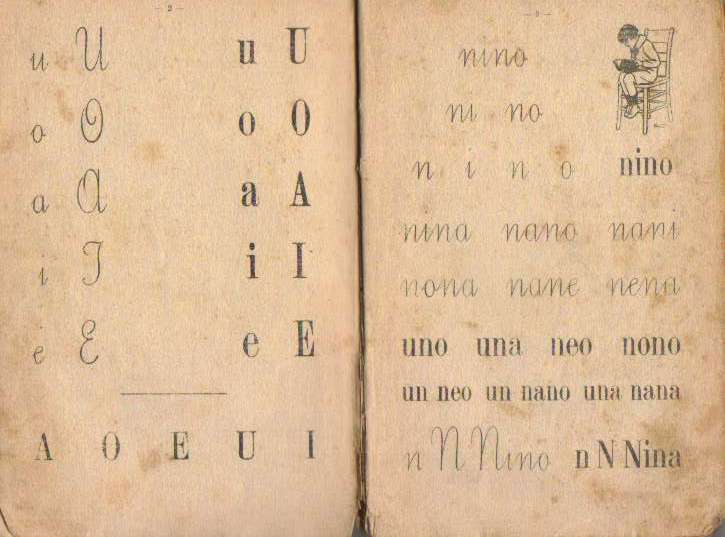 - 2 -
u U u U
o O o O
a A a A
i I i I
e E e E
A O E U I
- 3 -
nino
ni no
n i n o nino
nina nano nani
nona nane nena
uno una neo nono
un neo un nano una nana
n N Nino n N Nina